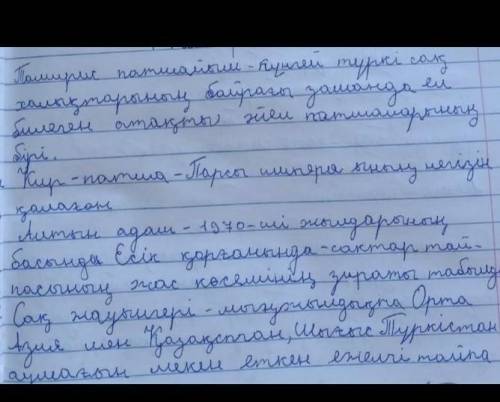 Томирис патшайым - Күнгей түркі сақ
халықтарының байрағы заманда ел
билеген атақты әйел патшаларының
бірі.
Кир - патша - Парсы империясының негізін
қалаған
Алтын адам - 1970-ші жылдарының
басында Есік қорғанында - сақтар тай-
пасының жас көсемінің зираты табылды
Сақ жауынгері - мыңжылдықта Орта
Азия мен Қазақстан, Шығыс Түркістан
аумағын мекен еткен ежелгі тайпа